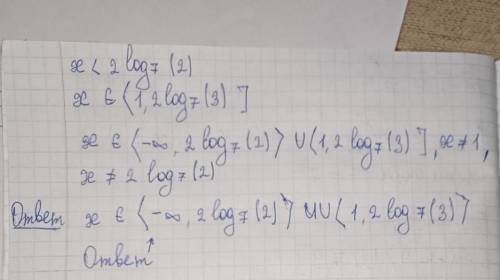 x < 2 log₇ (2)
x ∈ ⟨1, 2 log₇ (3)]
x ∈ ⟨-∞, 2 log₇ (2)⟩ ∪ ⟨1, 2 log₇ (3)], x ≠ 1,
x ≠ 2 log₇ (2)
Ответ x ∈ ⟨-∞, 2 log₇ (2)⟩ ∪ ⟨1, 2 log₇ (3)⟩
Ответ↑